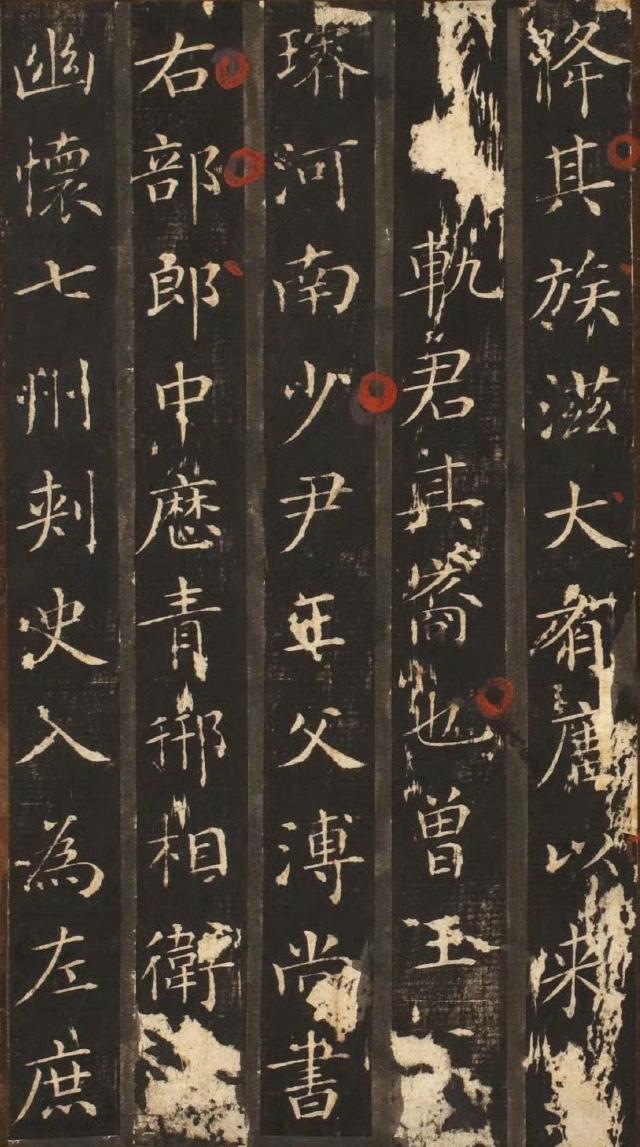 降其族滋大有唐以来
軌君其裔也曾王
河南少尹王父溥尚書
右部郎中歷青邢相衛
幽懷七州刺史入為左庶